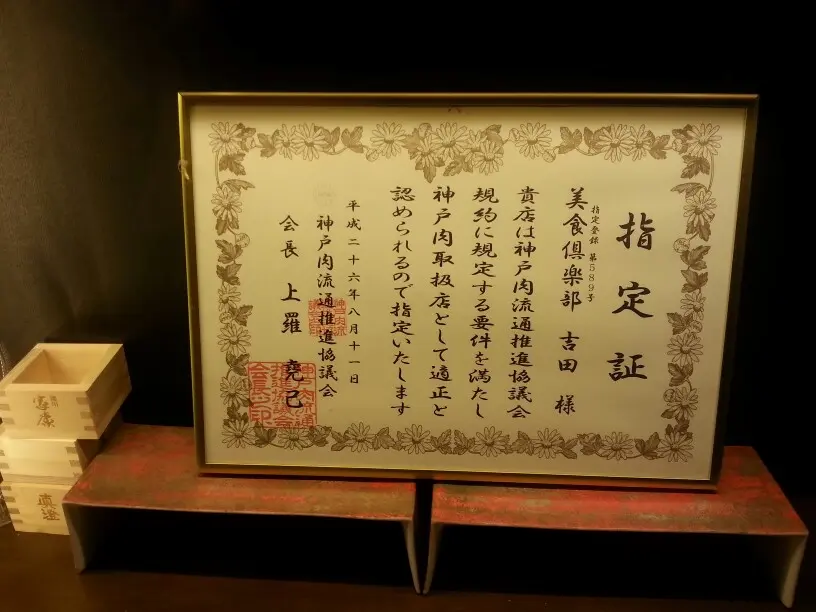 指定証
指定登録 第589号
美食倶楽部 吉田 様
貴店は神戸肉流通推進協議会
規約に規定する要件を満たし
神戸肉取扱店として適正と
認められるので指定いたします
平成二十六年八月十一日
神戸肉流通推進協議会
会長 上羅 堯己
真澄